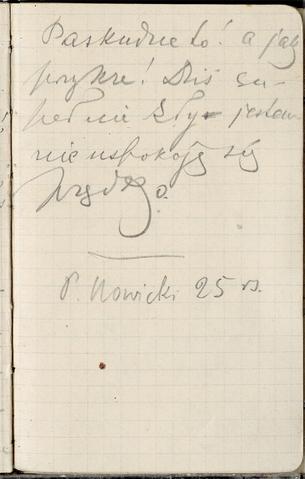 Paskudne to! a jak
przykre! Dziś zu-
pełnie zły jestem
nie uspokoję się
prędko.
P. Nowicki 25 rs.